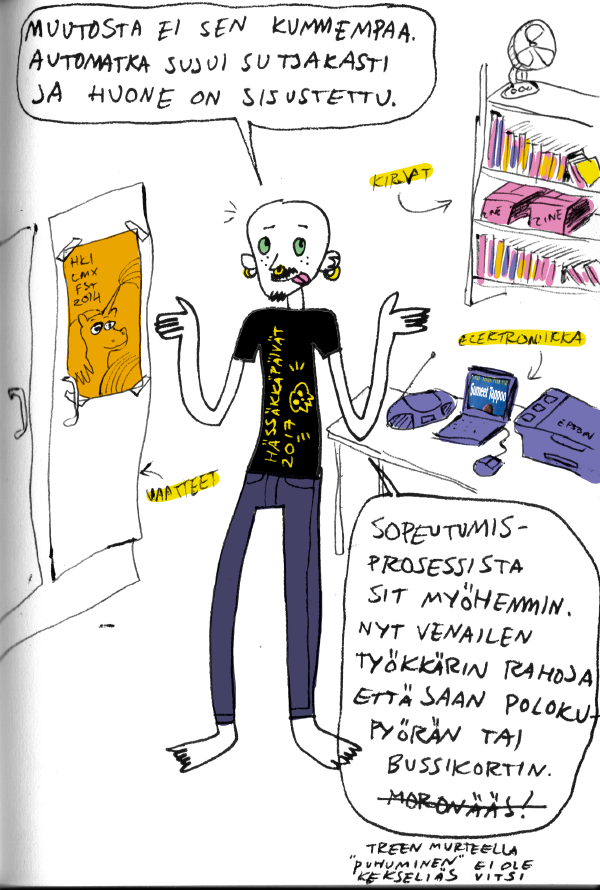 MUUTOSTA EI SEN KUMMEMPAA.
AUTOMATKA SUJUI SUTJAKASTI
JA HUONE ON SISUSTETTU.
KIRJAT
HKI
CMX
FST
2014
ZINE
ZINE
ELEKTRONIIKKA
Sumeet Tappoo
EPSON
HÄSSÄKKÄPÄIVÄT
2017
VAATTEET
SOPEUTUMIS-
PROSESSISTA
SIT MYÖHEMMIN.
NYT VENAILEN
TYÖKKÄRIN RAHOJA
ETTÄ SAAN POLOKU-
PYÖRÄN TAI
BUSSIKORTIN.
MOROVÄÄS!
TREEN MURTEELLA
"PUHUMINEN" EI OLE
KEKSELIÄS VITSI